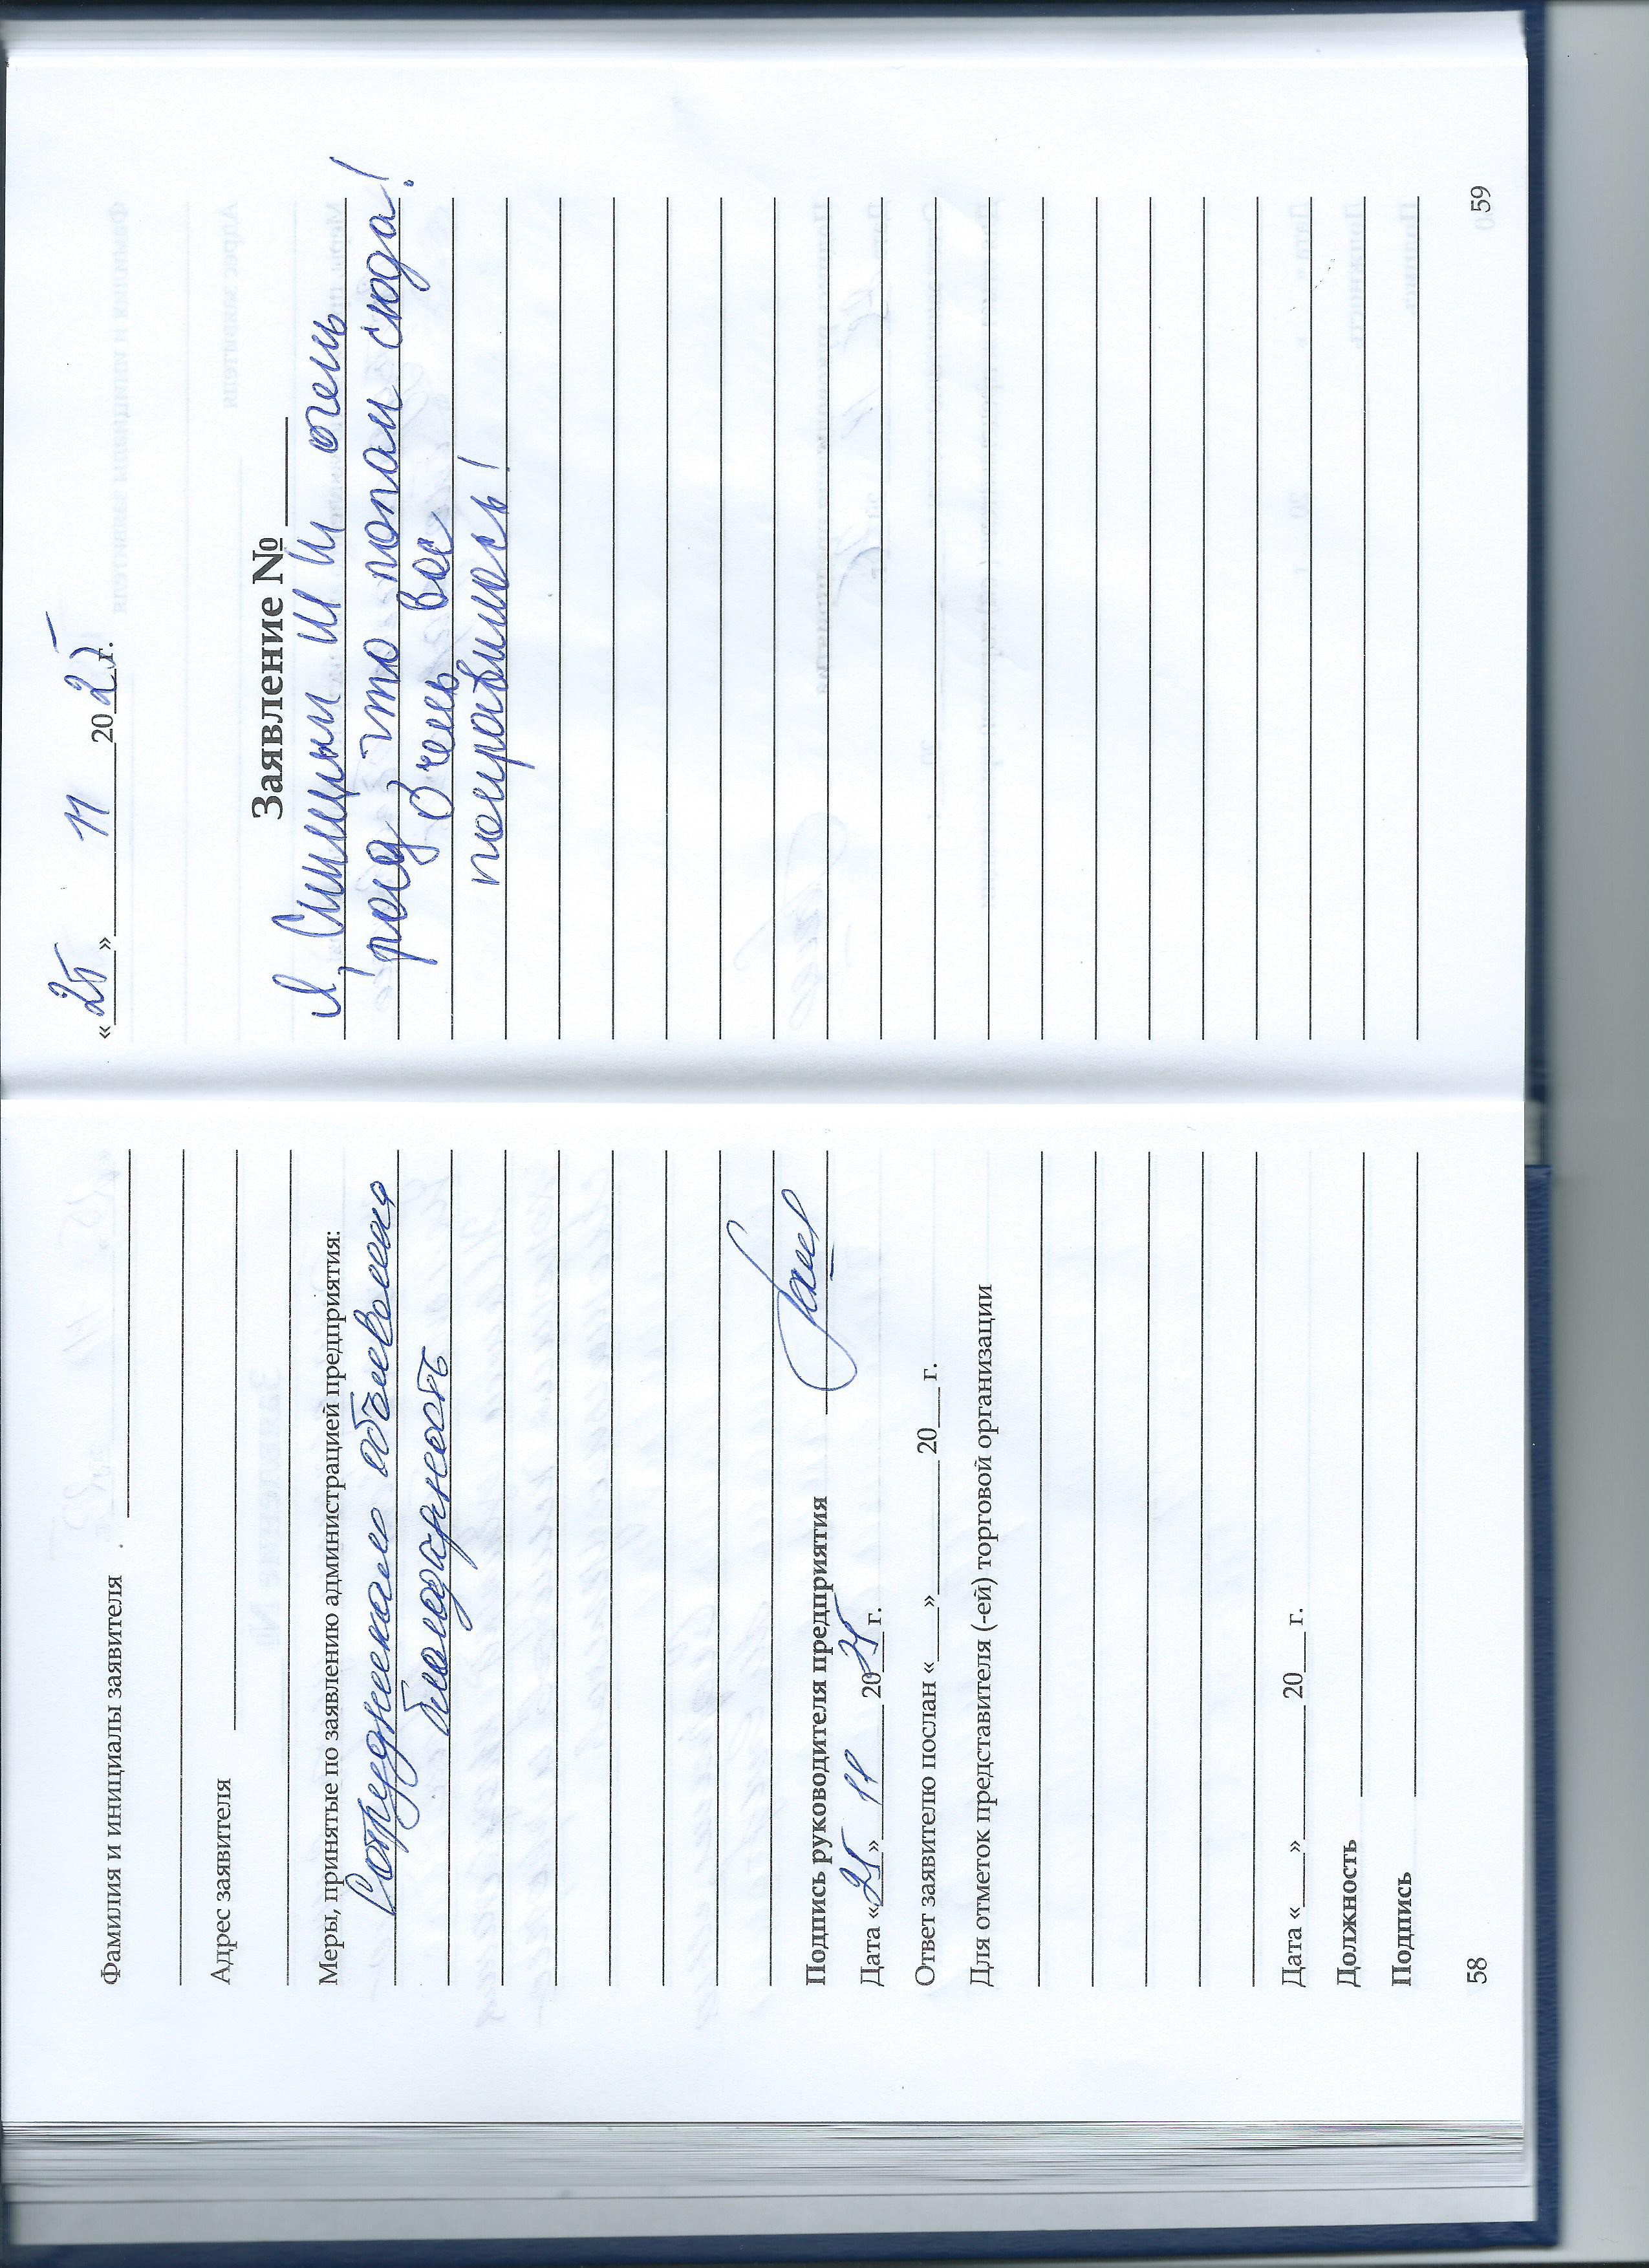 Фамилия и инициалы заявителя
Адрес заявителя
Меры, принятые по заявлению администрацией предприятия:
Сотрудникам объявлена
благодарность
Подпись руководителя предприятия
Дата «25» 11 2025 г.
Ответ заявителю послан «___» ______ 20___ г.
Для отметок представителя (-ей) торговой организации
Дата «___» ______ 20___ г.
Должность
Подпись
58
«25» 11 2025 г.
Заявление №
Я, Синицын И И очень
рад, что попал сюда!
Очень все
понравилось!
59